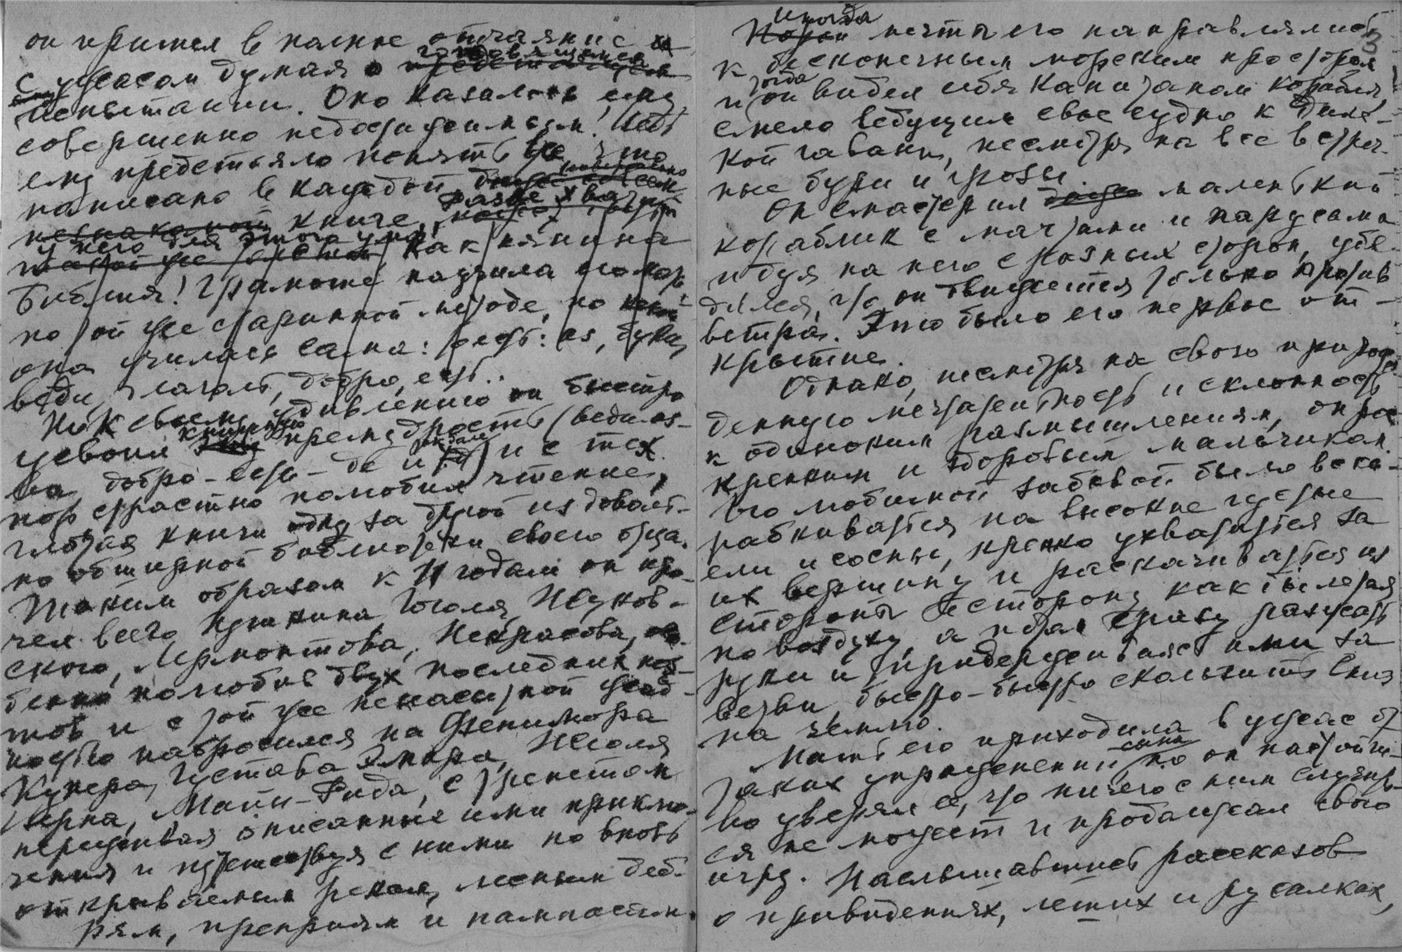 он пришел в полное отчаяние
с ужасом думая о готовящемся
испытании. Оно казалось ему
совершенно недостижимым! Ведь
ему предстояло понять все, что
написано в каждой
незнакомой книге,
у него для этого ума, как нянина
Библия! Грамоте научила его
по той же старинной методе, по
она училась сама: аз, буки,
веди, глаголь, добро, есть..
Но к своему удивлению он быстро
усвоил книжную премудрость (веди-аз-
ва, добро-есть-де и т. д.) и с тех
пор страстно полюбил чтение,
глотая книги одну за другой из доволь-
но обширной библиотеки своего отца.
Таким образом к 11 годам он про-
чел всего Пушкина, Гоголя, Жуков-
ского, Лермонтова, Некрасова, осо-
бенно полюбив двух последних поэ-
тов и с той же ненасытной жад-
ностью набросился на Фенимора
Купера, Густава Эмара, Жюля
Верна, Майн-Рида, с трепетом
переживая описанные ими приклю-
чения и путешествуя с ними по вновь
открываемым рекам, лесным деб-
рям, прериям и пампасам.
Иногда мечты его направлялись
к бесконечным морским просторам
и тогда он видел себя капитаном корабля,
смело ведущим свое судно к дале-
кой гавани, несмотря на все встреч-
ные бури и грозы.
Он смастерил маленький
кораблик с мачтами и парусами
и дуя на него с разных сторон, убе-
дился, что он движется только против
ветра. Это было его первое от-
крытие.
Однако, несмотря на свою прирож-
денную мечтательность и склонность
к одиноким размышлениям, он рос
крепким и здоровым мальчиком.
Его любимой забавой было вска-
рабкиваться на высокие густые
ели и сосны, крепко ухватиться за
их вершину и раскачиваться из
стороны в сторону, как бы летая
по воздуху, а потом сразу разжать
руки и придерживаясь ими за
ветви быстро-быстро скользить вниз
на землю.
Мать его приходила в ужас от
таких упражнений сына, но он настойчи-
во уверял ее, что ничего с ним случить-
ся не может и продолжал свою
игру. Наслышавшись рассказов
о привидениях, леших и русалках,